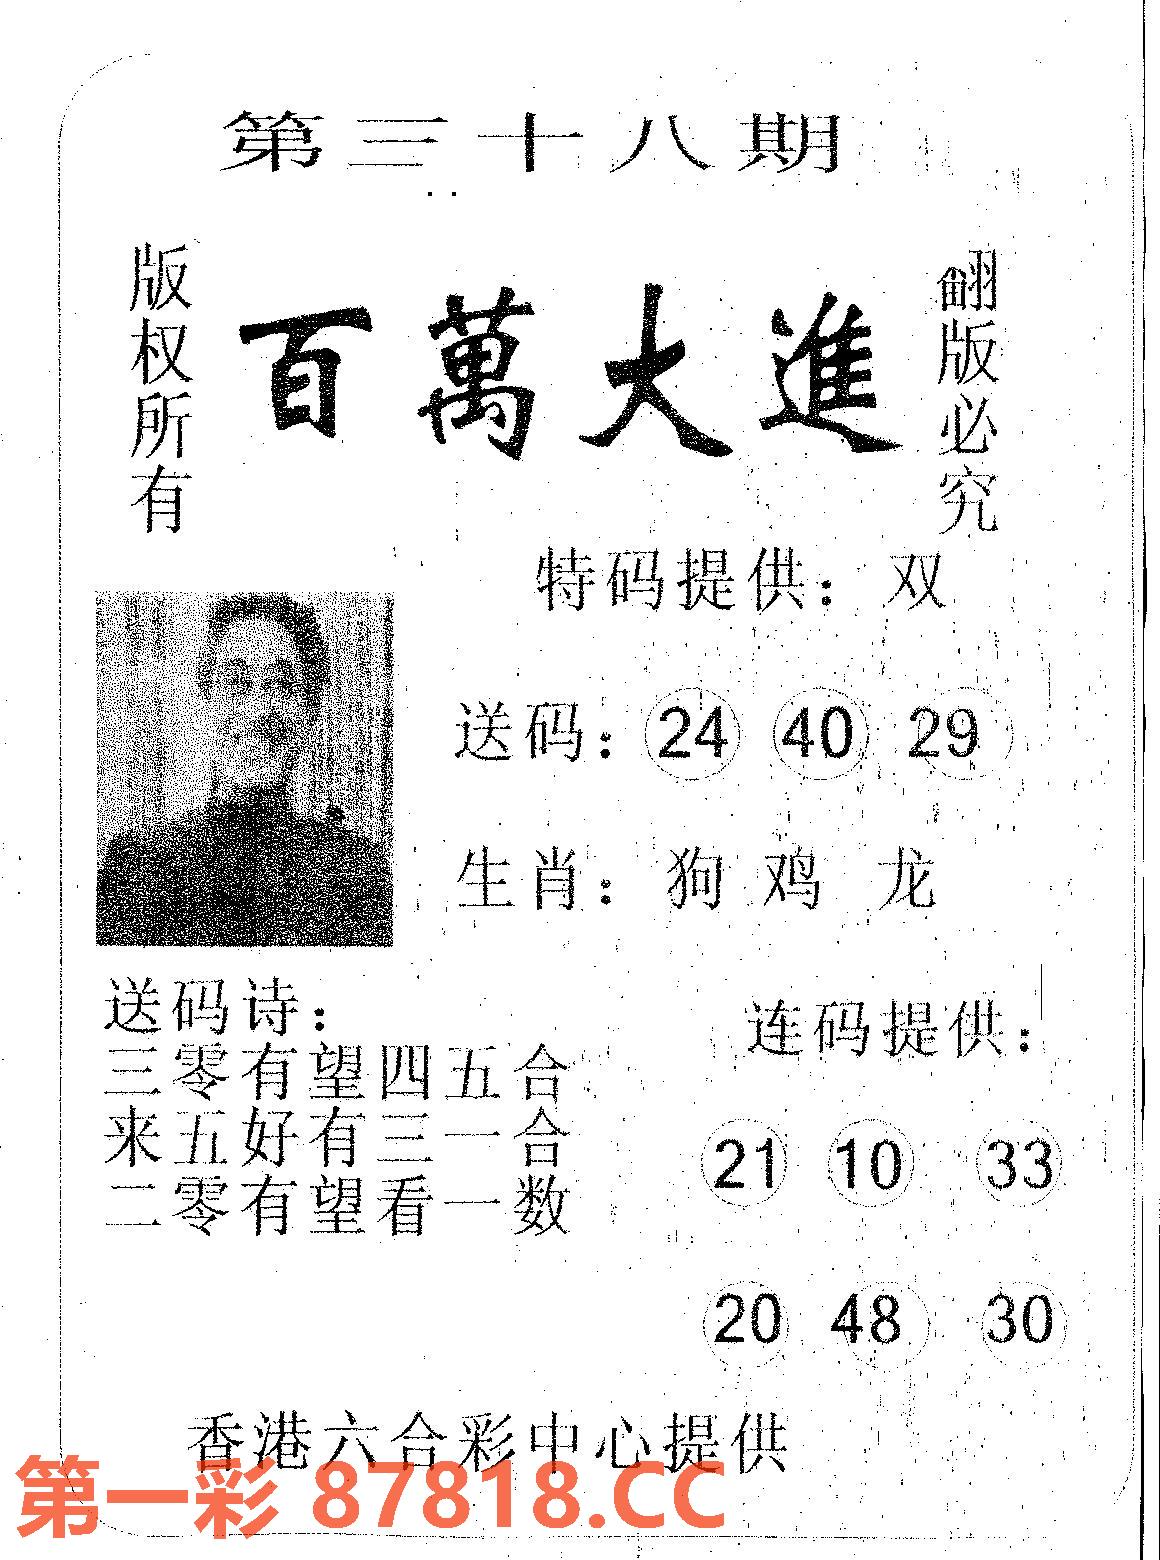 第三十八期
版权所有
百萬大進
翻版必究
特码提供：双
送码：24 40 29
生肖：狗 鸡 龙
送码诗：
三零有望四五合
来五好有三一合
二零有望看一数
连码提供：
21 10 33
20 48 30
香港六合彩中心提供
第一彩 87818.CC